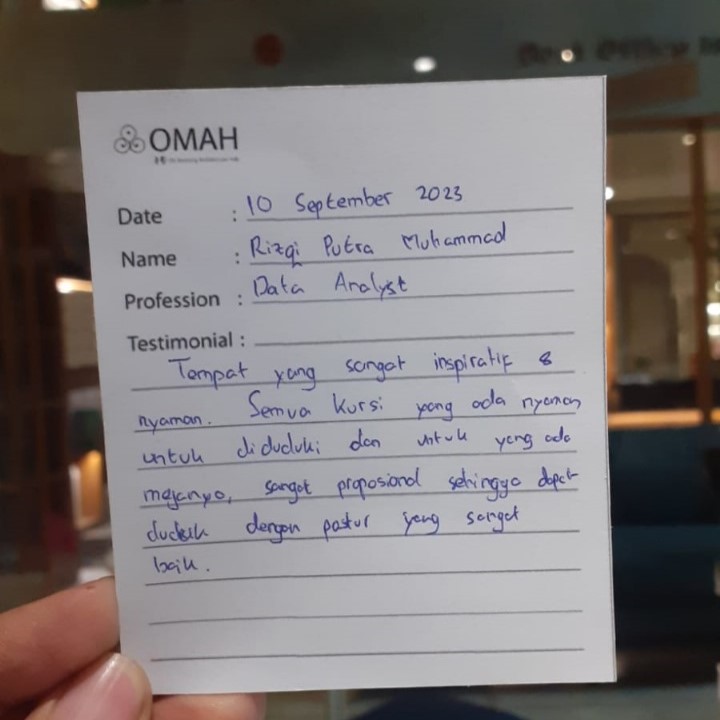 OMAH
Date : 10 September 2023
Name : Rizqi Putra Muhammad
Profession : Data Analyst
Testimonial :
Tempat yang sangat inspiratif &
nyaman. Semua kursi yang ada nyaman
untuk diduduki dan untuk yang ada
mejanya, sangat proposional sehingga dapat
duduk dengan pastur yang sangat
baik.